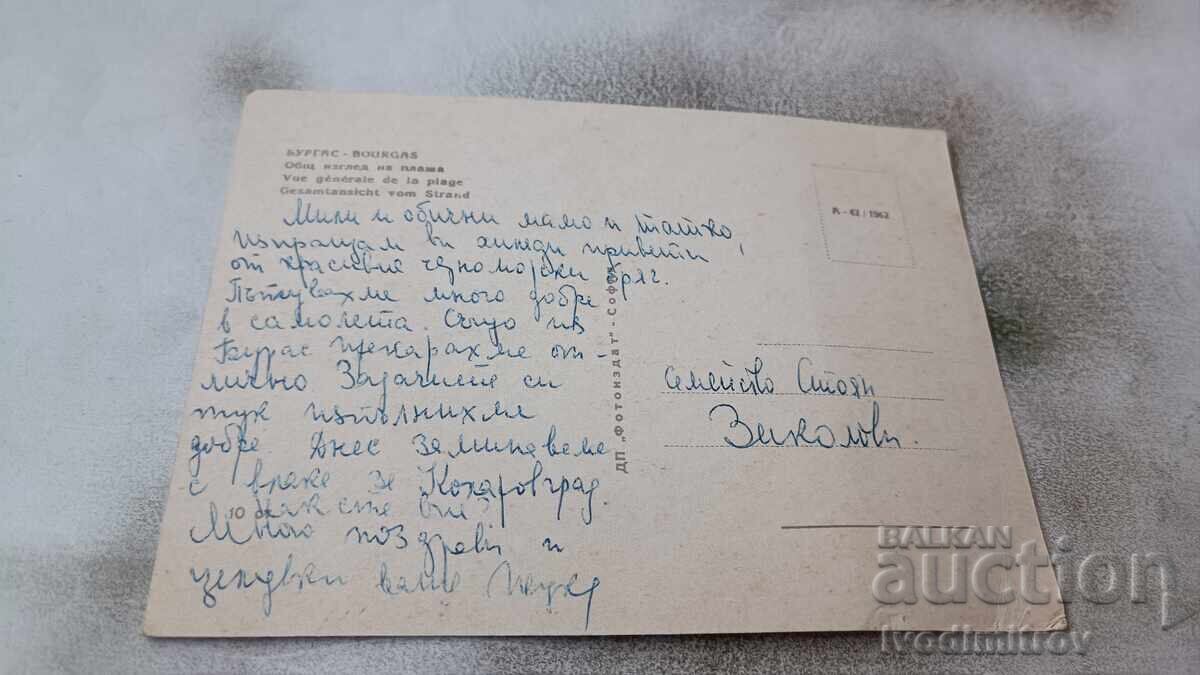 БУРГАС - BOURGAS
Общ изглед на плажа
Vue générale de la plage
Gesamtansicht vom Strand
Мили и обични мамо и татко,
изпращам ви хиляди привети
от красивие черноморски бряг.
Пътувахме много добре
в самолета. Също из
Бургас прекарахме от-
лично Задачите си
тук изпълнихме
добре. Днес заминаваме
с влака за Коларовград.
10 Как сте вие?
Много поздрави и
целувки ваше
ДП „Фотоиздат" - София
А - 62 / 1962
семейство Стоян
Зиколови.
BALKAN
auction
ivodimitrov